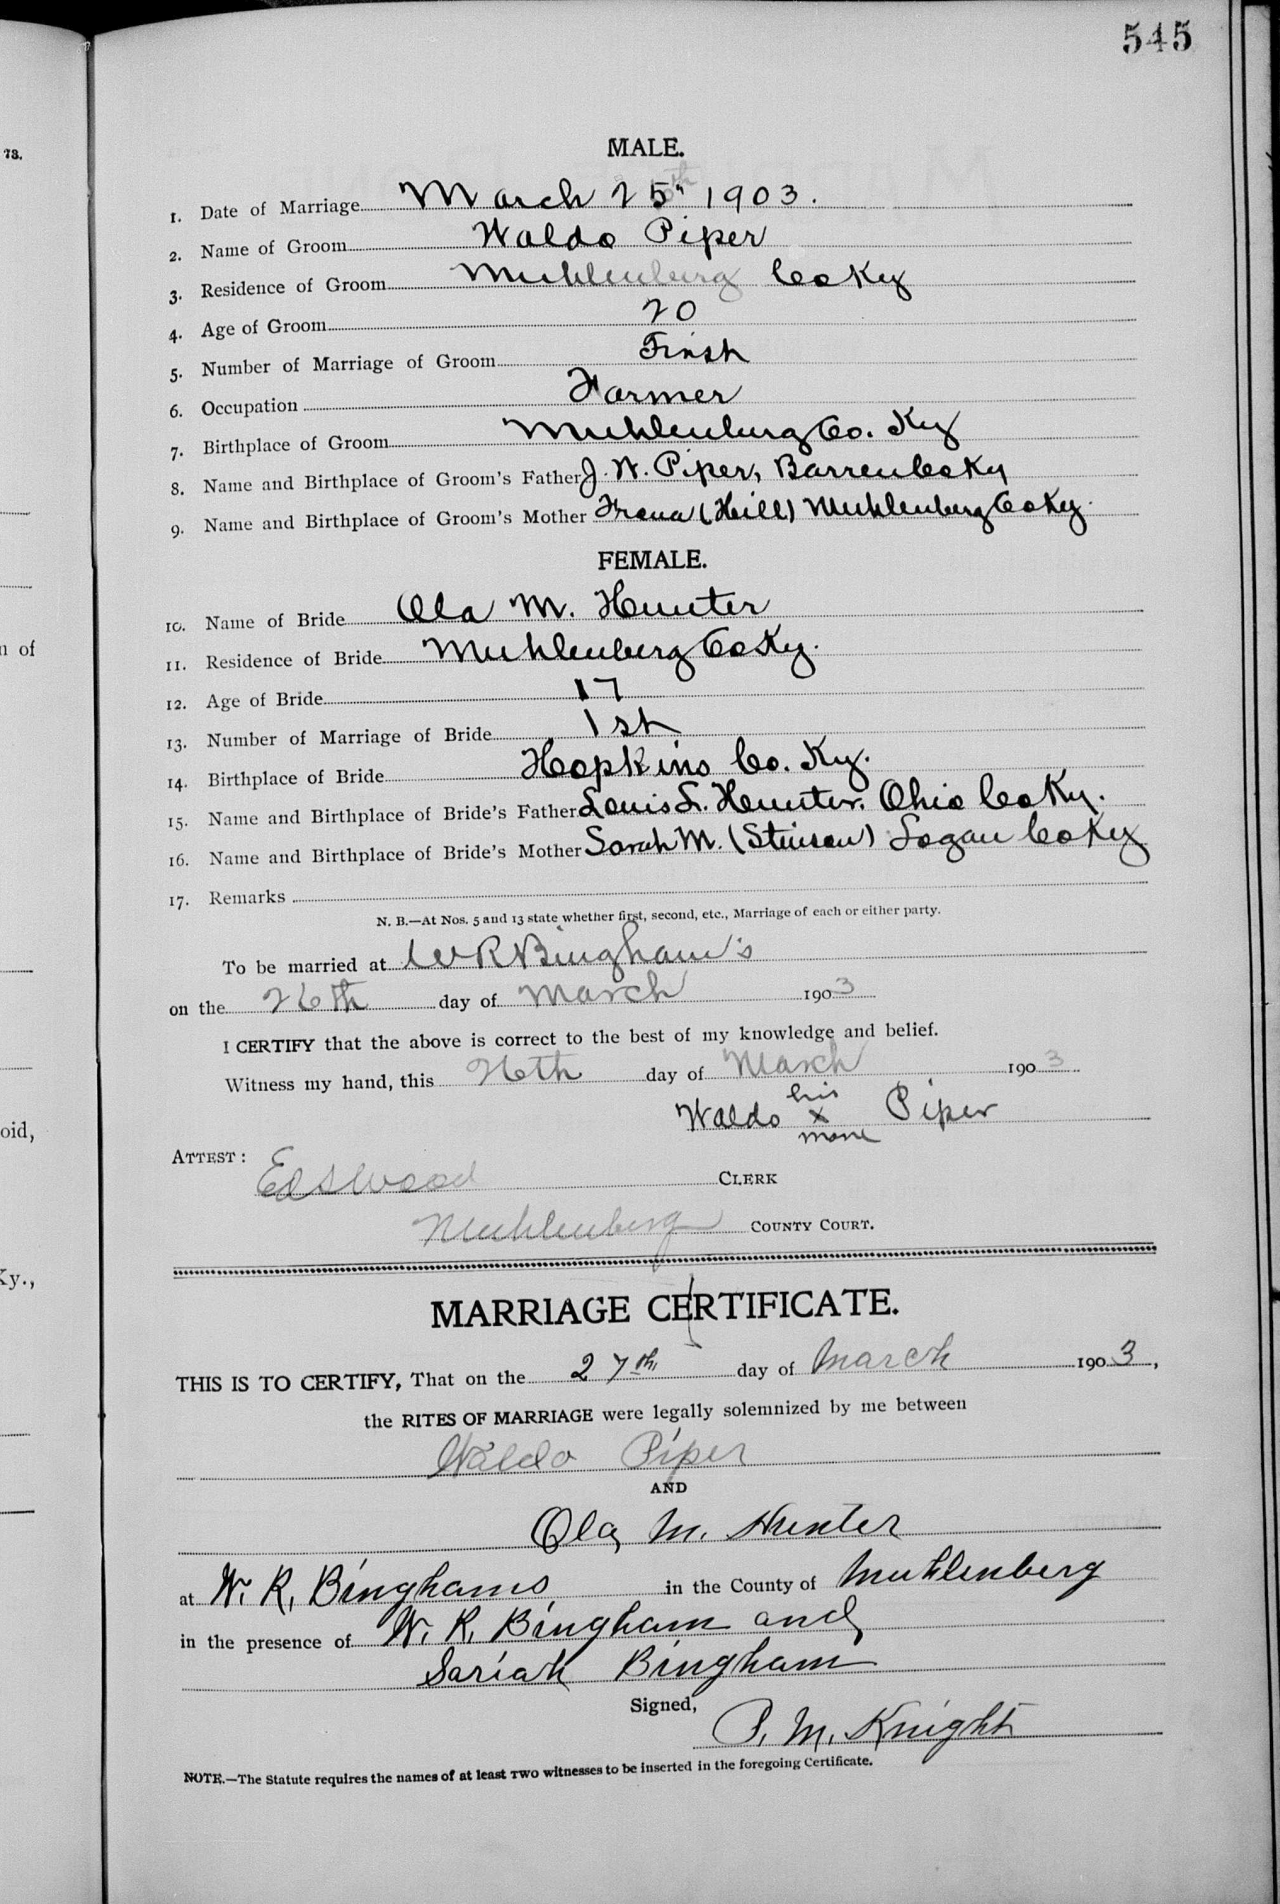 545
73.
MALE.
1. Date of Marriage March 25" 1903.
2. Name of Groom Waldo Piper
3. Residence of Groom Muhlenburg Co Ky
4. Age of Groom 20
5. Number of Marriage of Groom First
6. Occupation Farmer
7. Birthplace of Groom Muhlenburg Co. Ky
8. Name and Birthplace of Groom's Father J. W. Piper, Barren Co Ky
9. Name and Birthplace of Groom's Mother (Hill) Muhlenburg Co Ky.
FEMALE.
10. Name of Bride Ola M. Hunter
11. Residence of Bride Muhlenberg Co Ky.
12. Age of Bride 17
13. Number of Marriage of Bride 1st
14. Birthplace of Bride Hopkins Co. Ky.
15. Name and Birthplace of Bride's Father Louis L. Hunter. Ohio Co Ky.
16. Name and Birthplace of Bride's Mother Sarah M. (Stinson) Logan Co Ky
17. Remarks
N. B.—At Nos. 5 and 13 state whether first, second, etc., Marriage of each or either party.
n of
To be married at W R Bingham's
on the 26th day of March 1903
I CERTIFY that the above is correct to the best of my knowledge and belief.
Witness my hand, this 26th day of March 1903
his
Waldo x Piper
mark
oid,
ATTEST:
CLERK
Muhlenberg COUNTY COURT.
Ky.,
MARRIAGE CERTIFICATE.
THIS IS TO CERTIFY, That on the 27th day of March 1903,
the RITES OF MARRIAGE were legally solemnized by me between
Waldo Piper
AND
Ola M. Hunter
at W. R. Binghams in the County of Muhlenberg
in the presence of W. R. Bingham and
Sariah Bingham
Signed,
P. M. Knight
NOTE.—The Statute requires the names of at least TWO witnesses to be inserted in the foregoing Certificate.